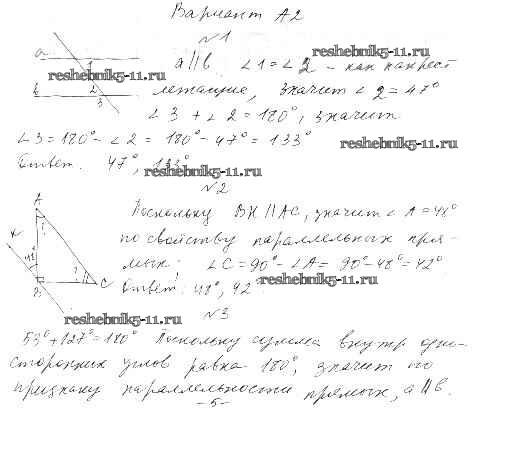 Вариант А2
№1
reshebnik5-11.ru
a
1
a||b ∠1=∠2 - как накрест
reshebnik5-11.ru
b
2
3
лежащие, значит ∠2=47°
∠3+∠2=180°, значит
∠3=180°-∠2=180°-47°=133°
reshebnik5-11.ru
Ответ: 47°, 133°
reshebnik5-11.ru
№2
A
?
K
48°
?
B
C
Поскольку BK||AC, значит ∠A=48°
по свойству параллельных пря-
мых. ∠C=90°-∠A=90°-48°=42°
reshebnik5-11.ru
Ответ: 48°, 42°
reshebnik5-11.ru
№3
53°+127°=180° Поскольку сумма внутр. одно-
сторонних углов равна 180°, значит по
признаку параллельности прямых, a||b.
-5-